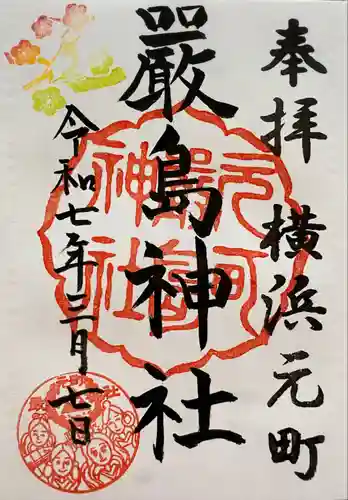 奉拝 横浜元町
嚴島神社
令和七年三月七日
元町嚴島神社